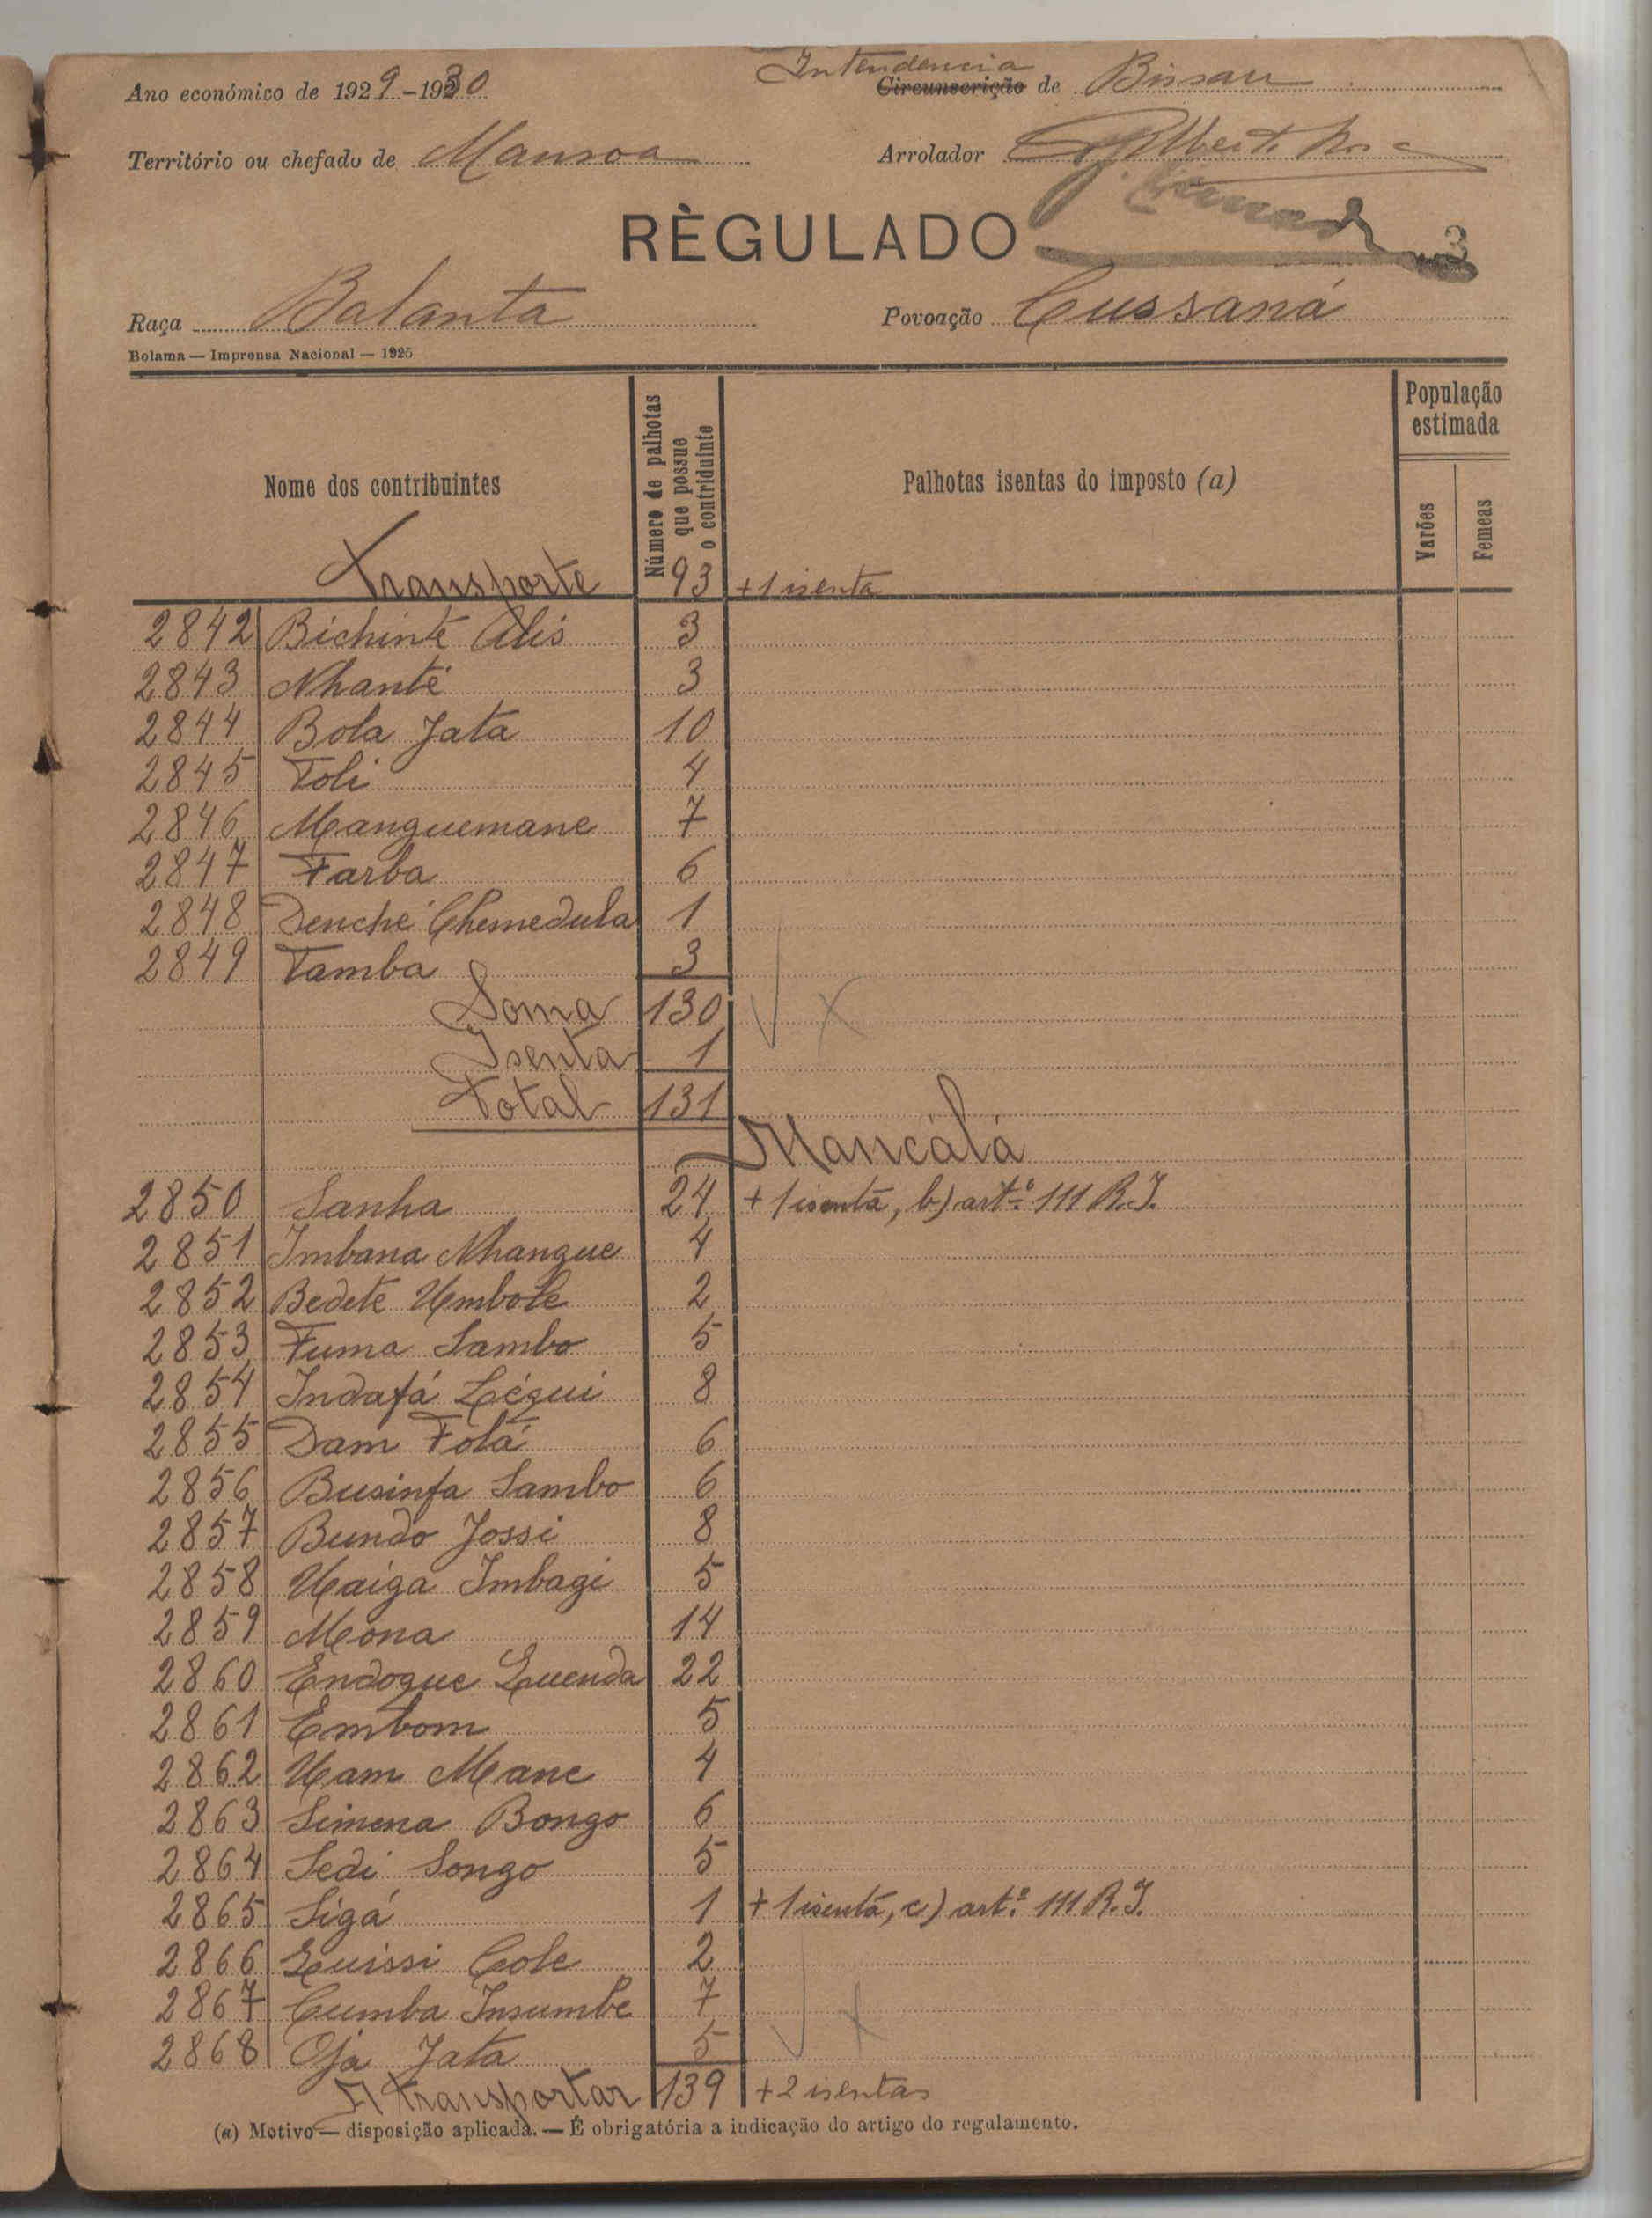 Ano económico de 1929-1930
Intendencia
Circunscrição de Bissau
Território ou chefado de Mansoa
Arrolador
RÈGULADO
3
Raça Balanta
Povoação Cussaná
Bolama — Imprensa Nacional — 1925
Nome dos contribuintes
Número de palhotas que possue o contriduinte
Palhotas isentas do imposto (a)
População estimada
Varões
Femeas
Transporte 93 +1 isenta
2842 Bichinte Alis 3
2843 Nhanté 3
2844 Bola Jatá 10
2845 Toli 4
2846 Manguemane 7
2847 Farba 6
2848 Denché Chemedula 1
2849 Tamba 3
Soma 130
Isenta 1
Total 131
Mancálá
2850 Sanha 24 + 1 isenta, b) artº 111 R.I.
2851 Imbana Nhangue 4
2852 Bedete Umbole 2
2853 Fuma Sambo 5
2854 Indafá Légui 8
2855 Dam Folá 6
2856 Businfa Sambo 6
2857 Bundo Jossi 8
2858 Uaiga Imbagi 5
2859 Mona 14
2860 Endogue Quenda 22
2861 Embom 5
2862 Uam Mane 4
2863 Simena Bongo 6
2864 Sedi Songo 5
2865 Sigá 1 + 1 isenta, c) artº 111 R.I.
2866 Quissi Cole 2
2867 Cumba Insumbe 7
2868 Oja Jatá 5
A transportar 139 +2 isentas
(a) Motivo — disposição aplicada. — É obrigatória a indicação do artigo do regulamento.